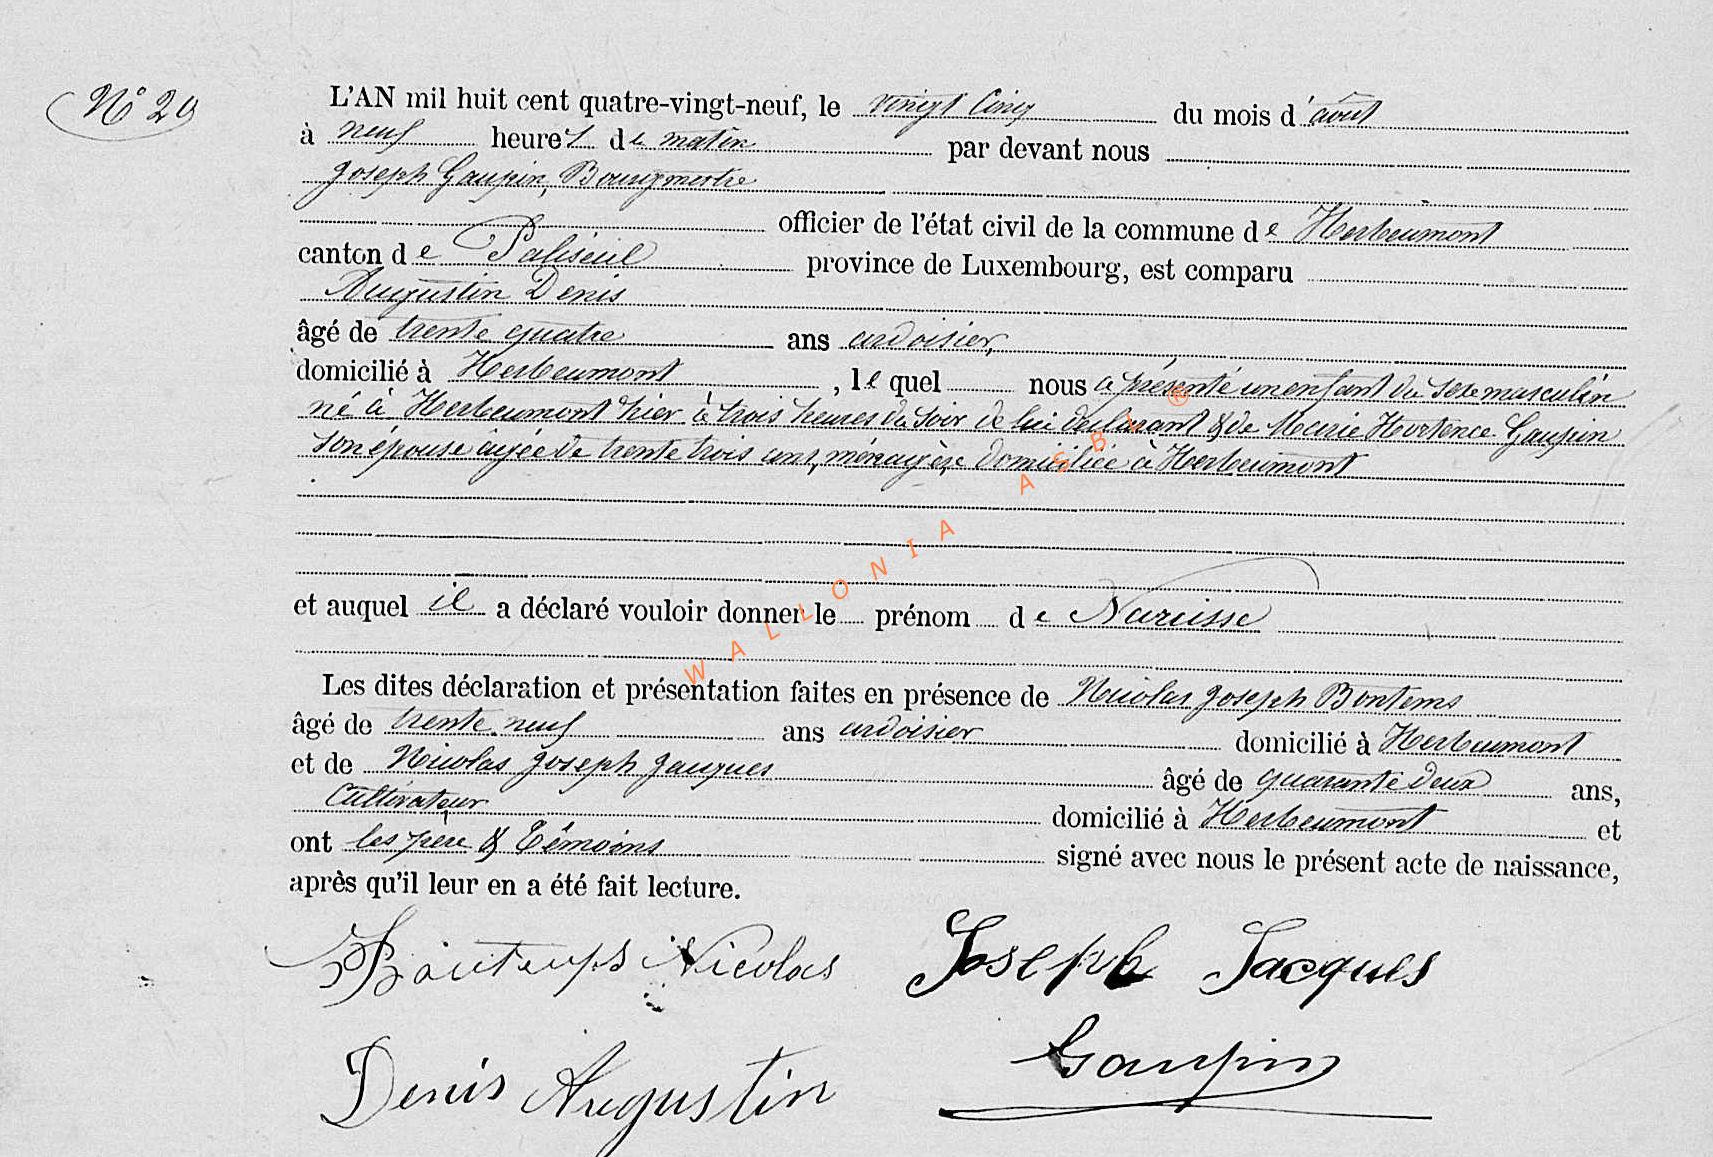 N° 29
L'AN mil huit cent quatre-vingt-neuf, le vingt Cinq du mois d'août
à neuf heures de matin par devant nous
Joseph Gaupin, Bourgmestre
officier de l'état civil de la commune de Herbeumont
canton de Paliseul province de Luxembourg, est comparu
Augustin Denis
âgé de trente quatre ans ardoisier,
domicilié à Herbeumont, lequel nous a présenté un enfant du sexe masculin
né à Herbeumont hier à trois heures du soir de lui déclarant & de Marie Hortence Gaupin
son épouse âgée de trente trois ans, ménagère domiciliée à Herbeumont
et auquel il a déclaré vouloir donner le prénom de Narcisse
Les dites déclaration et présentation faites en présence de Nicolas Joseph Bontems
âgé de trente neuf ans ardoisier domicilié à Herbeumont
et de Nicolas Joseph Jacques âgé de quarante deux ans,
Cultivateur domicilié à Herbeumont et
ont les père & Témoins signé avec nous le présent acte de naissance,
après qu'il leur en a été fait lecture.
Bontemps Nicolas Joseph Jacques
Denis Augustin Gaupin
WALLONIA ASBL ®